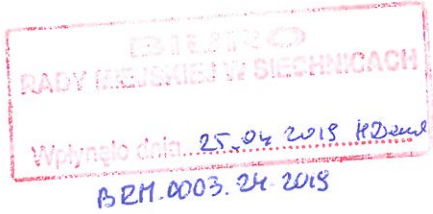 BIURO
RADY MIEJSKIEJ W SIECHNICACH
Wpłynęło dnia 25.04 2019
BRM.0003.24.2019